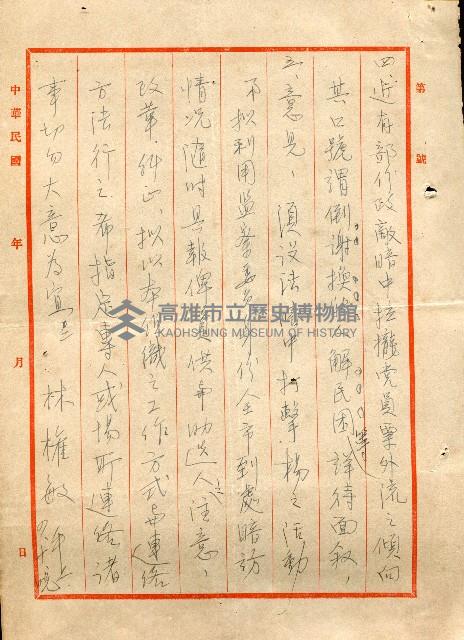 第　號
四、近有部份政敵暗中拉攏党員票外流之傾向
其口號謂倒謝換楊解民困等詳待面敘、
五、意見、須設法暗中打擊楊之活動
不拟利用監察委員身份人全市到處暗訪
情況隨時具報俾資供弟助選人注意、
改革糾正、拟以本組織之工作方式与連絡
方法行之希指定專人或場所連絡諸
事切勿大意為宜
林權敏
中華民國　年　月　日
高雄市立歷史博物館
KAOHSIUNG MUSEUM OF HISTORY